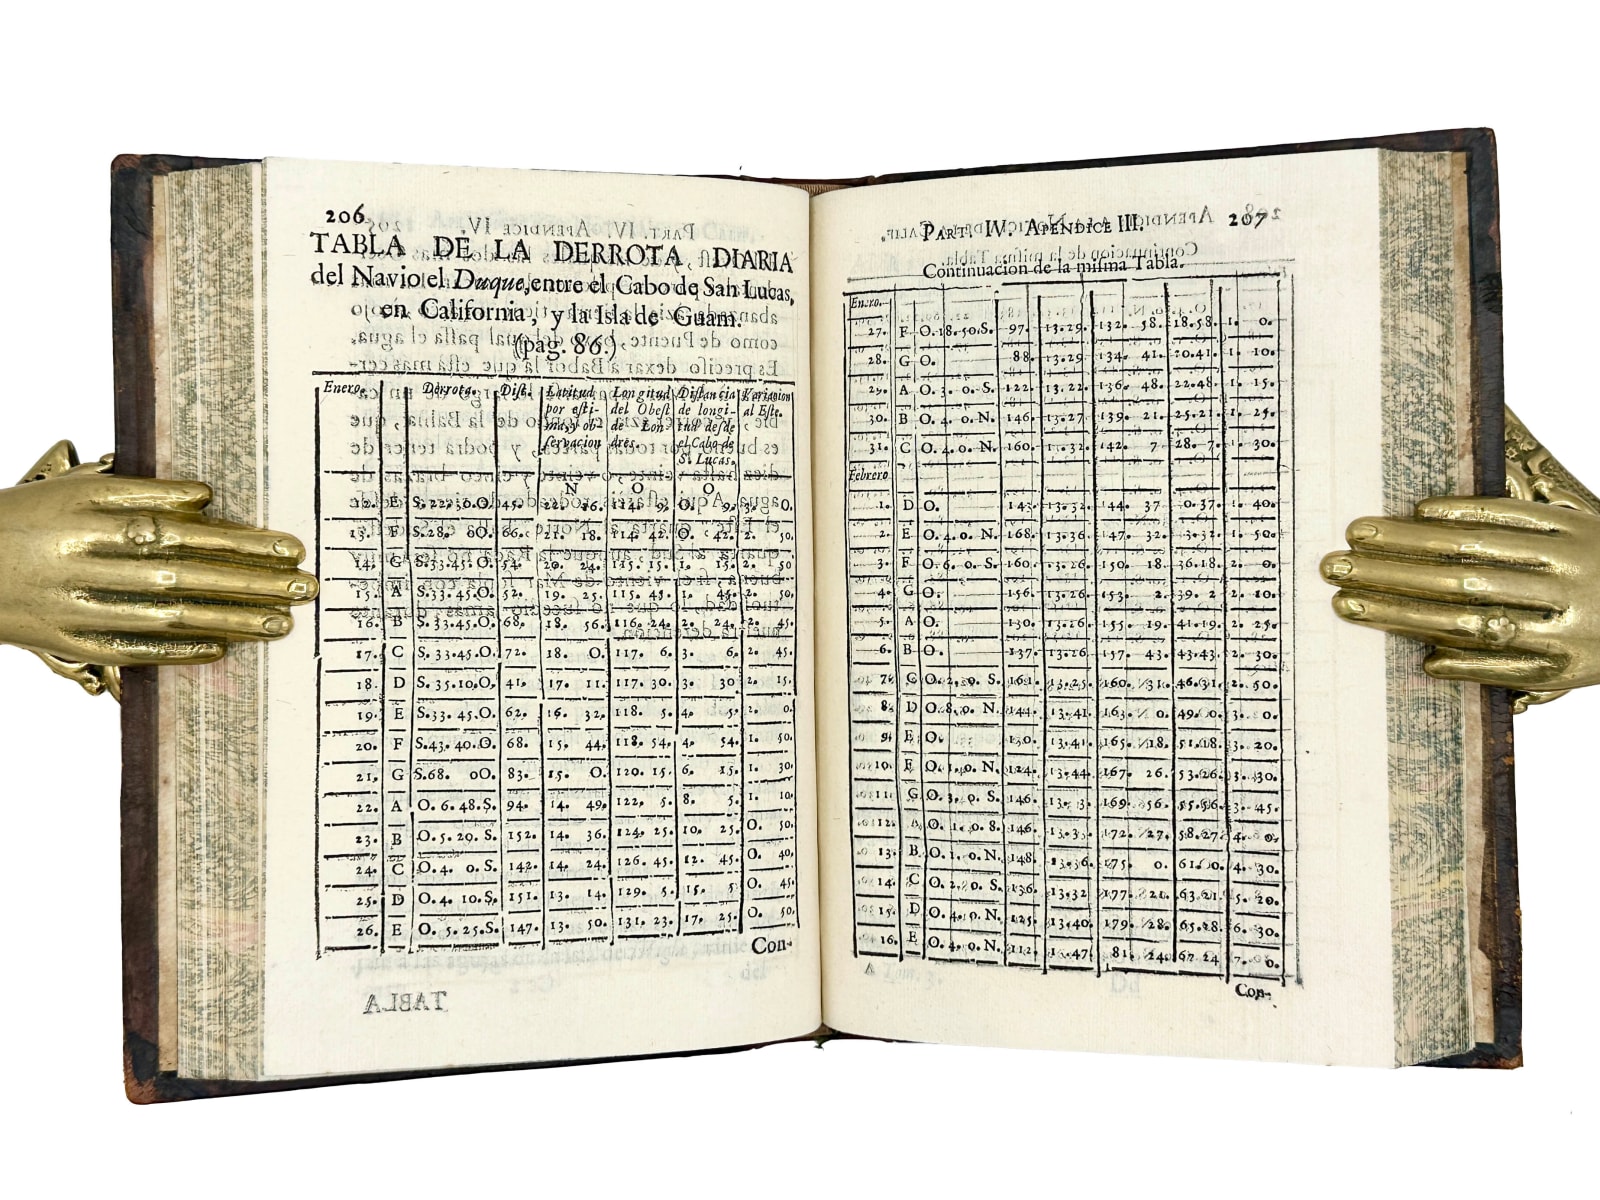 206
TABLA DE LA DERROTA DIARIA
del Navio el Duque, entre el Cabo de San Lucas,
en California, y la Isla de Guam.
(pag. 86.)
Enero. Derrota. Dist. Latitud por esti- ma, y ob- servacion Longitud del Obest de Lon- dres. Distancia de longi- tud desde el Cabo de S. Lucas. Variacion al Este.
N O O
12. E S.22.30.O. 45. 22. 26. 114. 9. 0. 9. 3. 0.
13. F S.28. 0O. 66. 21. 18. 114. 42. 0. 42. 2. 50.
14. G S.33.45.O. 54. 20. 24. 115. 15. 1. 15. 2. 50
15. A S.33.45.O. 52. 19. 25. 115. 45. 1. 45. 2. 50.
16. B S.33.45.O. 68. 18. 56. 116. 24. 2. 24. 2. 45.
17. C S.33.45.O. 72. 18. 0. 117. 6. 3. 6. 2. 45.
18. D S.35.10.O. 41. 17. 11. 117. 30. 3. 30 2. 15.
19. E S.33.45.O. 62. 16. 32. 118. 5. 4. 5. 2. 0.
20. F S.43.40.O. 68. 15. 44. 118. 54. 4. 54. 1. 50.
21. G S.68. 0O. 83. 15. 0. 120. 15. 6. 15. 1. 30.
22. A O. 6. 48. S. 94. 14. 49. 122. 5. 8. 5. 1. 10.
23. B O. 5. 20. S. 152. 14. 36. 124. 25. 10. 25. 0. 50.
24. C O. 4. 0. S. 142. 14. 24. 126. 45. 12. 45. 0. 40.
25. D O. 4. 10. S. 151. 13. 14. 129. 5. 15. 5 0. 45.
26. E O. 5. 25. S. 147. 13. 50. 131. 23. 17. 25. 0. 50.
Con-
PART. IV. APENDICE III. 207
Continuacion de la misma Tabla.
Enero.
27. F O.18.50.S. 97. 13.29. 132. 58. 18.58. 1. 0.
28. G O. 88. 13.29 134. 41. 20.41. 1. 10.
29. A O. 3. 0. S. 122. 13.22. 136. 48. 22.48. 1. 15.
30. B O. 4. 0. N. 146. 13.27 139. 21. 25.21. 1. 25.
31. C O. 4. 0. N. 160. 13.32. 142. 7. 28. 7. 1. 30.
Febrero
1. D O. 143. 13.32 144. 37 0.37. 1. 40.
2. E O. 4. 0. N. 168. 13.36 147. 32. 3.32. 1. 50.
3. F O. 6. 0. S. 160. 13.26 150. 18. 36.18. 2. 0.
4. G O. 156. 13.26 153. 2. 39. 2 2. 10.
5. A O. 130. 13.26 155. 19. 41.19. 2. 25.
6. B O. 137. 13.26 157. 43. 43.43. 2. 30.
7. C O. 2. 0. S. 161. 13.25. 160. 31. 46.31. 2. 50.
8. D O. 8. 0. N. 144. 13.41. 163. 0. 49. 0. 3. 0.
9. E O. 130. 13.41. 165. 18. 51.18. 3. 20.
10. F O. 1. 0. N. 124. 13.44. 167 26. 53.26. 3. 30.
11. G O. 3. 0. S. 146. 169. 56. 55.56. 3. 45.
12. O. 1. 0. 146. 172. 27. 58.27 4. 0.
13. B. O. 1. 0. N. 148. 13.36. 175. 0. 61. 0. 4. 30.
14. C O. 2. 0. S. 136. 13.32 177. 21. 63.21. 5. 20.
15. D O. 4. 0. N. 125. 13.40. 179. 28. 65.28 6. 30.
16. E O. 4. 0. N. 112. 13.47. 81. 24. 67 24 7. 0.
Con-